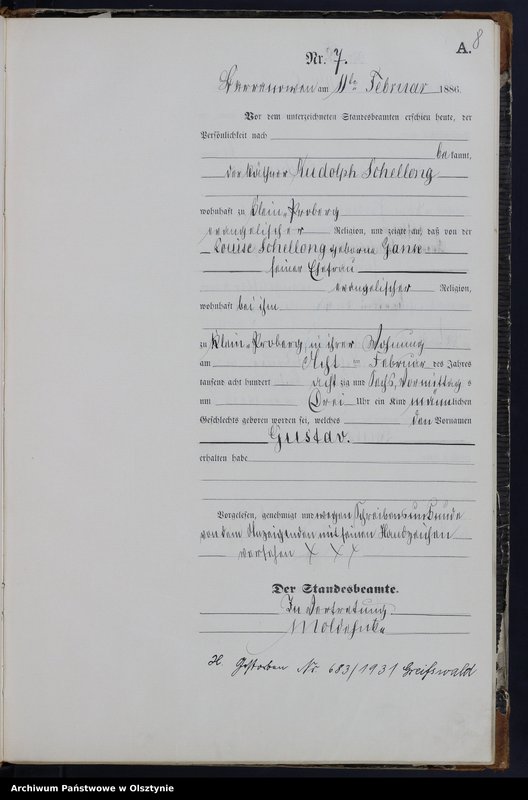 A. 8
Nr. 7.
am 11ten Februar 1886.
Vor dem unterzeichneten Standesbeamten erschien heute, der
Persönlichkeit nach
be kannt,
der Käthner Rudolph Schellong
wohnhaft zu Klein-Proberg
evangelischer Religion, und zeigte an, daß von der
Louise Schellong geborne
seiner Ehefrau
evangelischer Religion,
wohnhaft bei ihm
zu Klein-Proberg, in ihrer Wohnung
am Acht ten Februar des Jahres
tausend acht hundert acht zig und Sechs, Vormittag s
um Drei Uhr ein Kind männlichen
Geschlechts geboren worden sei, welches den Vornamen
Gustav.
erhalten habe
Vorgelesen, genehmigt und wegen Schreibensunkunde
von dem Anzeigenden mit seinen Handzeichen
versehen X X X
Der Standesbeamte.
In Vertretung
Moldehnke
H. Gestorben Nr. 683/1931 Greifswald
Archiwum Państwowe w Olsztynie